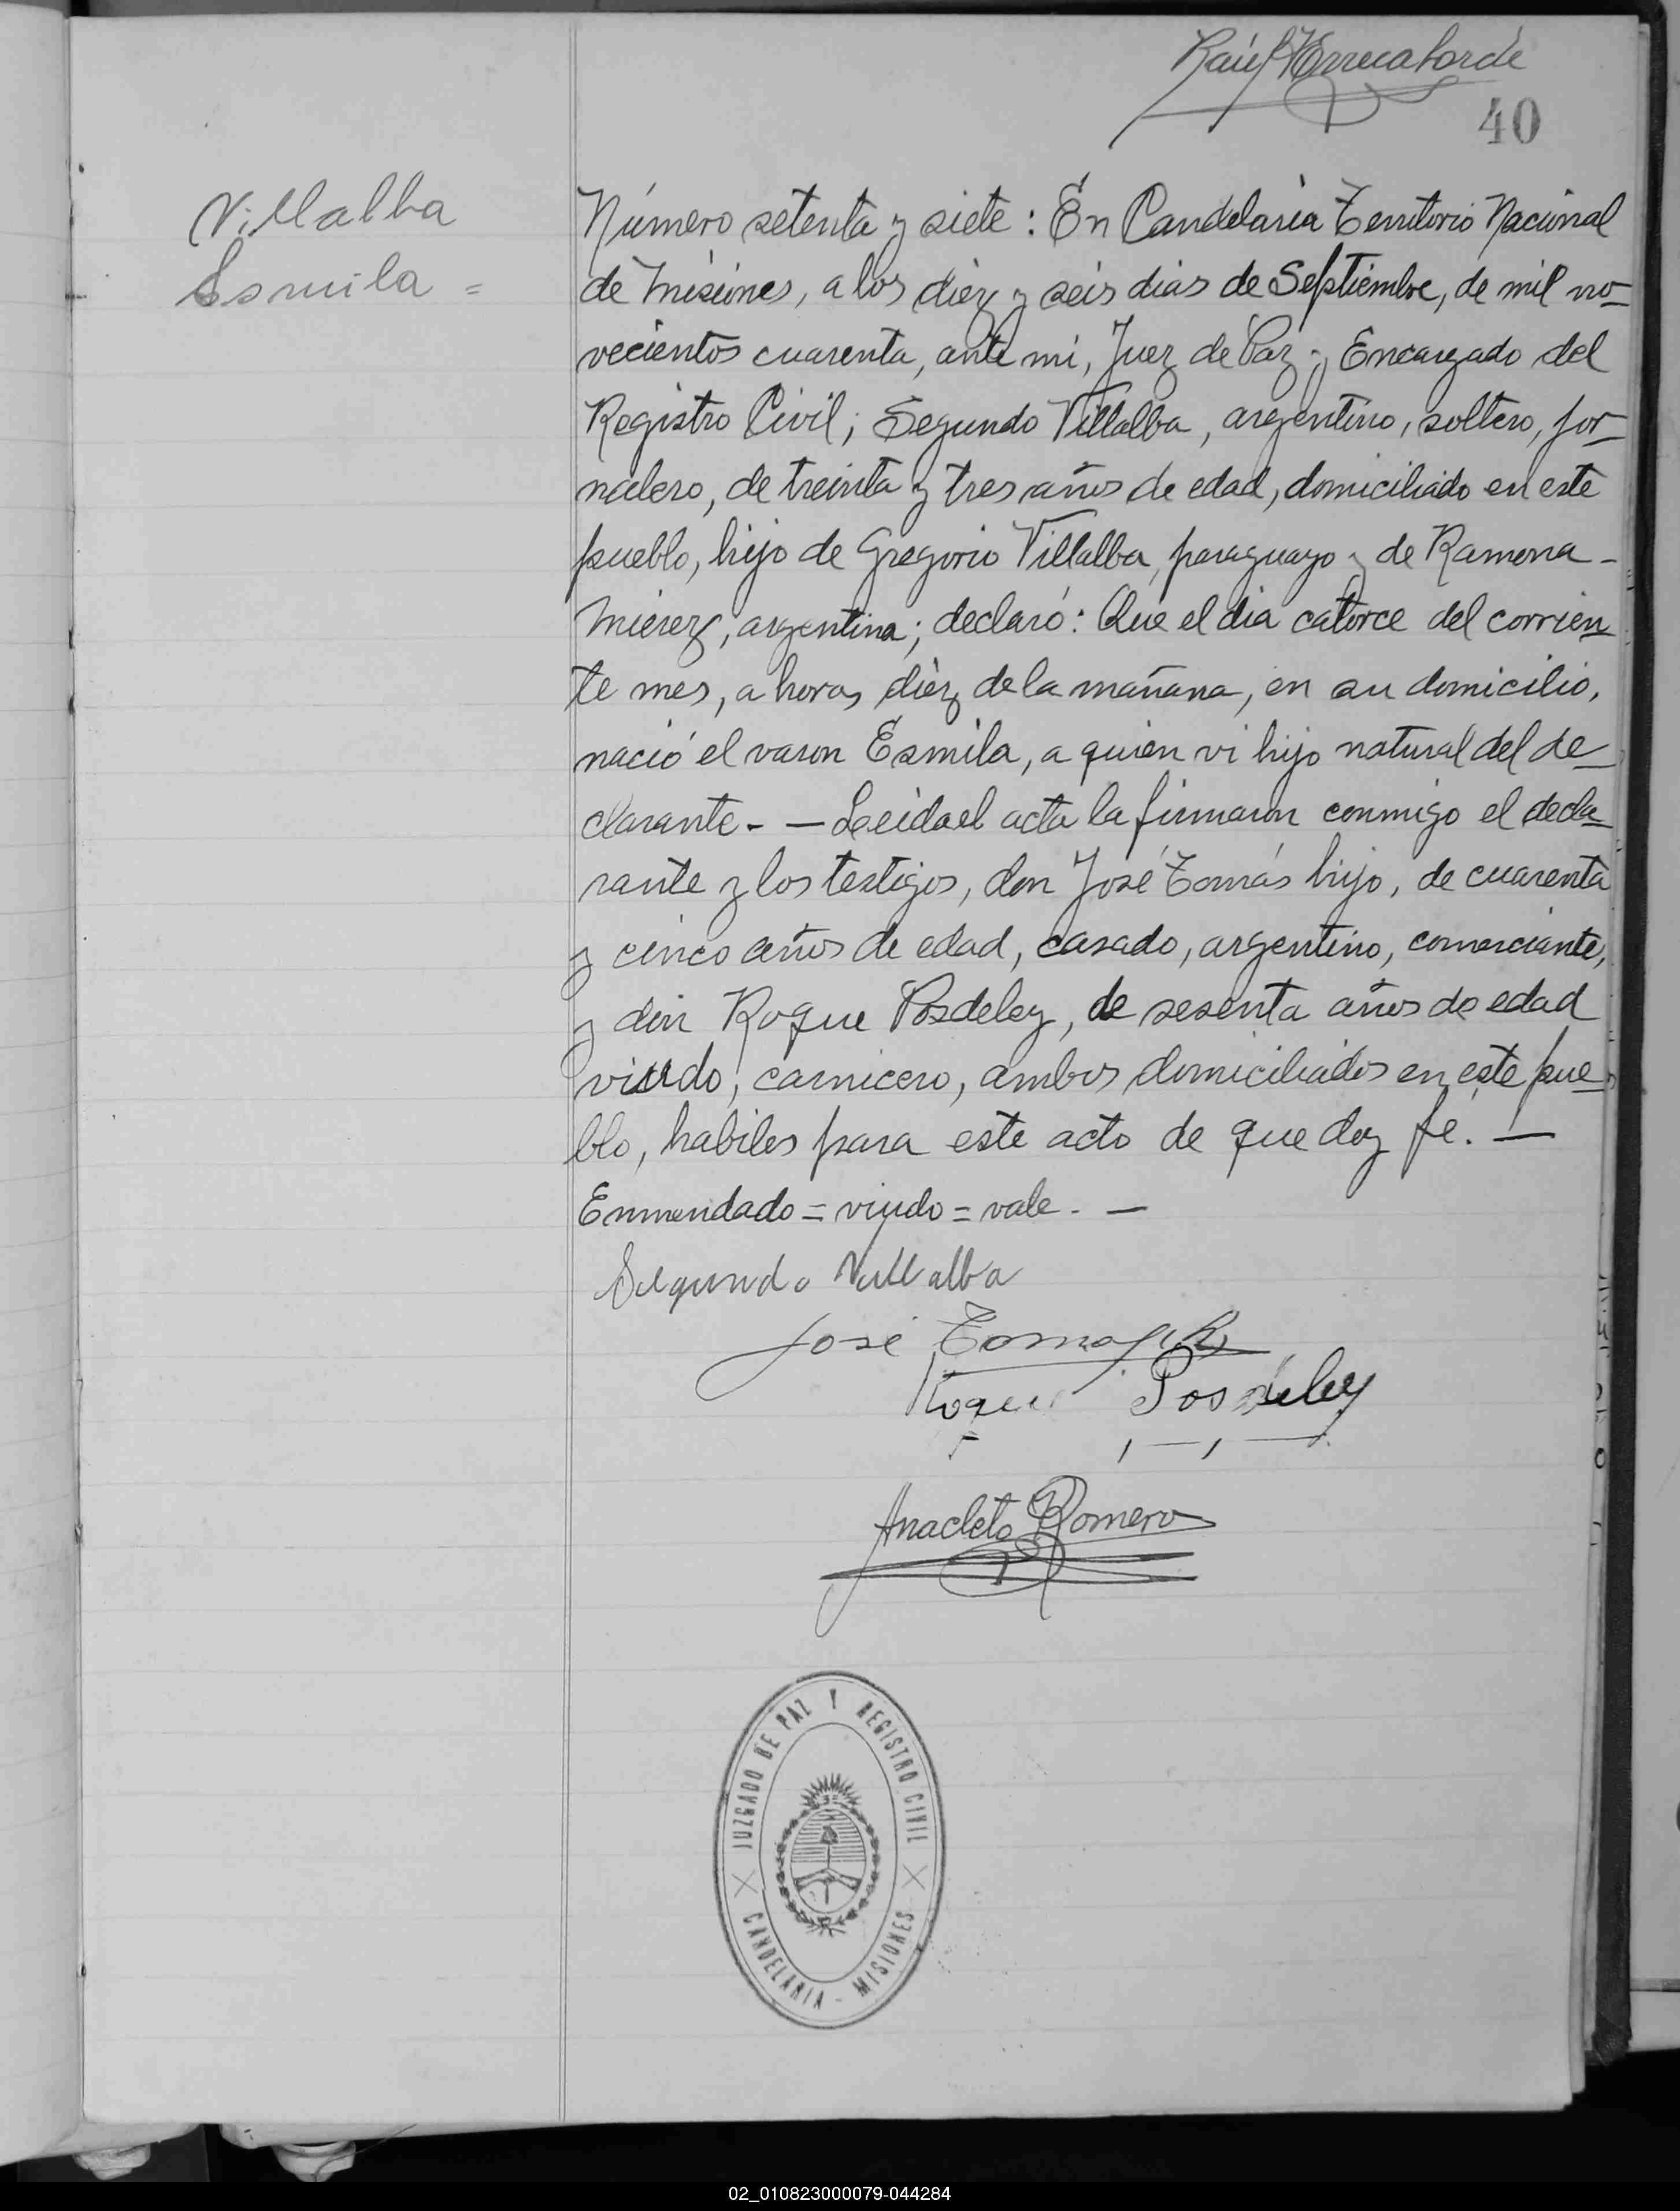 Raúl Errecaborde
40
Villalba
Esmila =
Número setenta y siete: En Candelaria Territorio Nacional
de Misiones, a los diez y seis dias de Septiembre, de mil no-
vecientos cuarenta, ante mi, Juez de Paz y Encargado del
Registro Civil; Segundo Villalba, argentino, soltero, jor-
nalero, de treinta y tres años de edad, domiciliado en este
pueblo, hijo de Gregorio Villalba, paraguayo y de Ramona -
Mierez, argentina; declaró: Que el dia catorce del corrien-
te mes, a horas diez de la mañana, en su domicilio,
nació el varon Esmila, a quien vi hijo natural del de-
clarante - — Leida el acta la firmaron conmigo el decla-
rante y los testigos, don José Tomás hijo, de cuarenta
y cinco años de edad, casado, argentino, comerciante,
y don Roque Posdeley, de sesenta años de edad
viudo, carnicero, ambos domiciliados en este pue-
blo, habiles para este acto de que doy fe. —
Enmendado = viudo = vale - —
Segundo Villalba
José Tomas
Roque Posdeley
Anacleto Romero
JUZGADO DE PAZ Y REGISTRO CIVIL
CANDELARIA - MISIONES
02_010823000079-044284